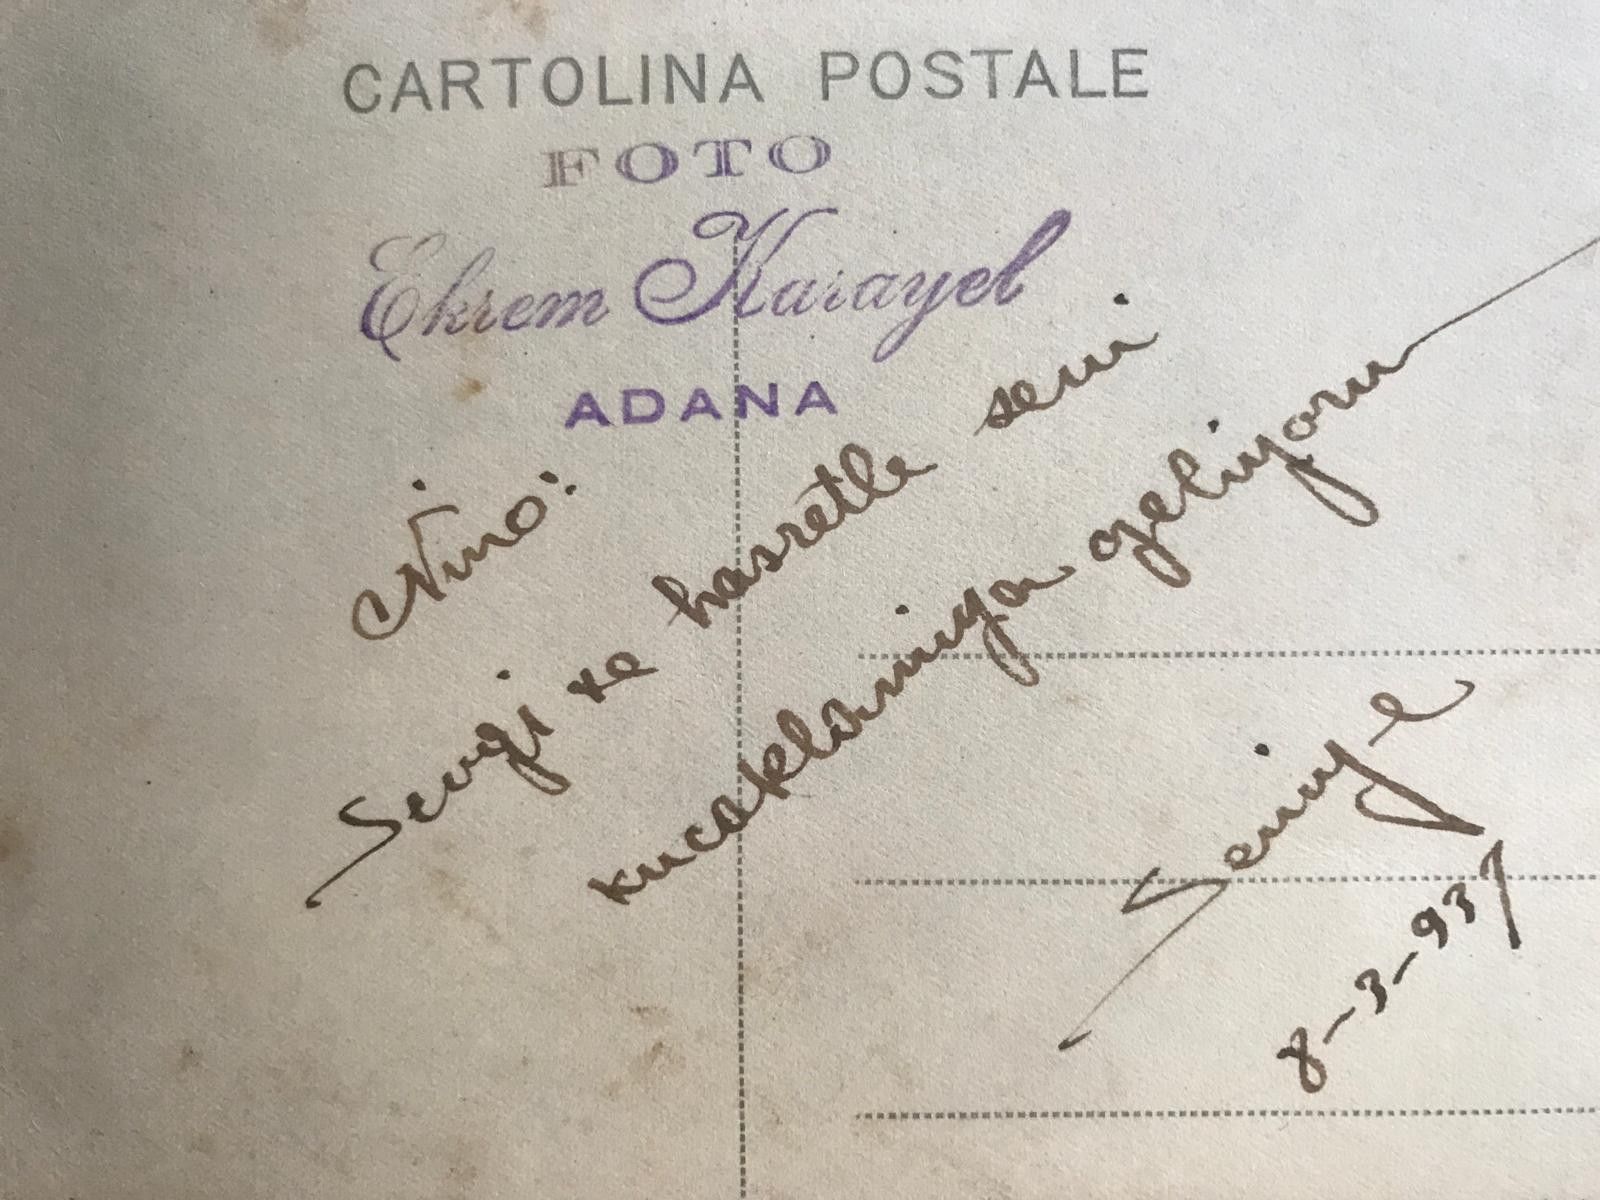 CARTOLINA POSTALE
FOTO
Ekrem Karayel
ADANA
Nino:
Sevgi ve hasretle seni
kucaklamiya geliyoru
Seniye
8-3-937